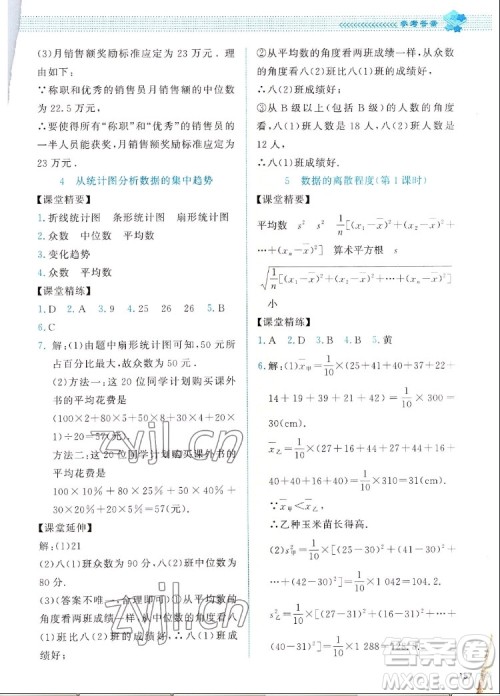 参考答案
(3)月销售额奖励标准应定为 23 万元. 理由如下:
∵称职和优秀的销售员月销售额的中位数
为 22.5 万元,
∴要使得所有“称职”和“优秀”的销售员的
一半人员能获奖,月销售额奖励标准应定为
23 万元.
4 从统计图分析数据的集中趋势
【课堂精要】
1. 折线统计图 条形统计图 扇形统计图
2. 众数 中位数 平均数
3. 变化趋势
4. 众数 平均数
【课堂精练】
1. D 2. A 3. 9 4. 25 26 26 5. B
6. C
7. 解:(1)由题中扇形统计图可知,50 元所
占百分比最大,故众数为 50 元.
(2)方法一:这 20 位同学计划购买课外
书的平均花费是
(100×2+80×5+50×8+30×4+20×
1)÷20=57(元).
方法二:这 20 位同学计划购买课外书的
平均花费是
100×10%+80×25%+50×40%+
30×20%+20×5%=57(元).
【课堂延伸】
解:(1)21
(2)八(1)班众数为 90 分,八(2)班中位数为
80 分.
(3)(答案不唯一,合理即可)①从平均数的
角度看两班成绩一样,从中位数的角度看
八(1)班比八(2)班的成绩好,∴八(1)班成
绩好;
②从平均数的角度看两班成绩一样,从众数
的角度看八(2)班比八(1)班的成绩好,
∴八(2)班成绩好;
③从 B 级以上(包括 B 级)的人数的角度
看,八(1)班人数是 18 人,八(2)班人数是
12 人,
∴八(1)班成绩好.
5 数据的离散程度(第 1 课时)
【课堂精要】
平均数 s² s² 1/n[(x₁−x̄)²+(x₂−x̄)²
+⋯+(xₙ−x̄)²] 算术平方根 s
√(1/n[(x₁−x̄)²+(x₂−x̄)²+⋯+(xₙ−x̄)²])
小
【课堂精练】
1. A 2. D 3. B 4. B 5. 黄
6. 解:(1)x̄甲=1/10×(25+41+40+37+22+
14+19+39+21+42)=1/10×300=
30(cm).
x̄乙=1/10×(27+16+44+27+44+16+
40+40+16+40)=1/10×310=31(cm).
∵x̄甲<x̄乙,
∴乙种玉米苗长得高.
(2)s²甲=1/10×[(25−30)²+(41−30)²+
(40−30)²+(37−30)²+(22−30)²+
(14−30)²+(19−30)²+(39−30)²+
(21−30)²+(42−30)²]=1/10×1 042=
104.2(cm²).
zyjl.cn
zyjl.cn